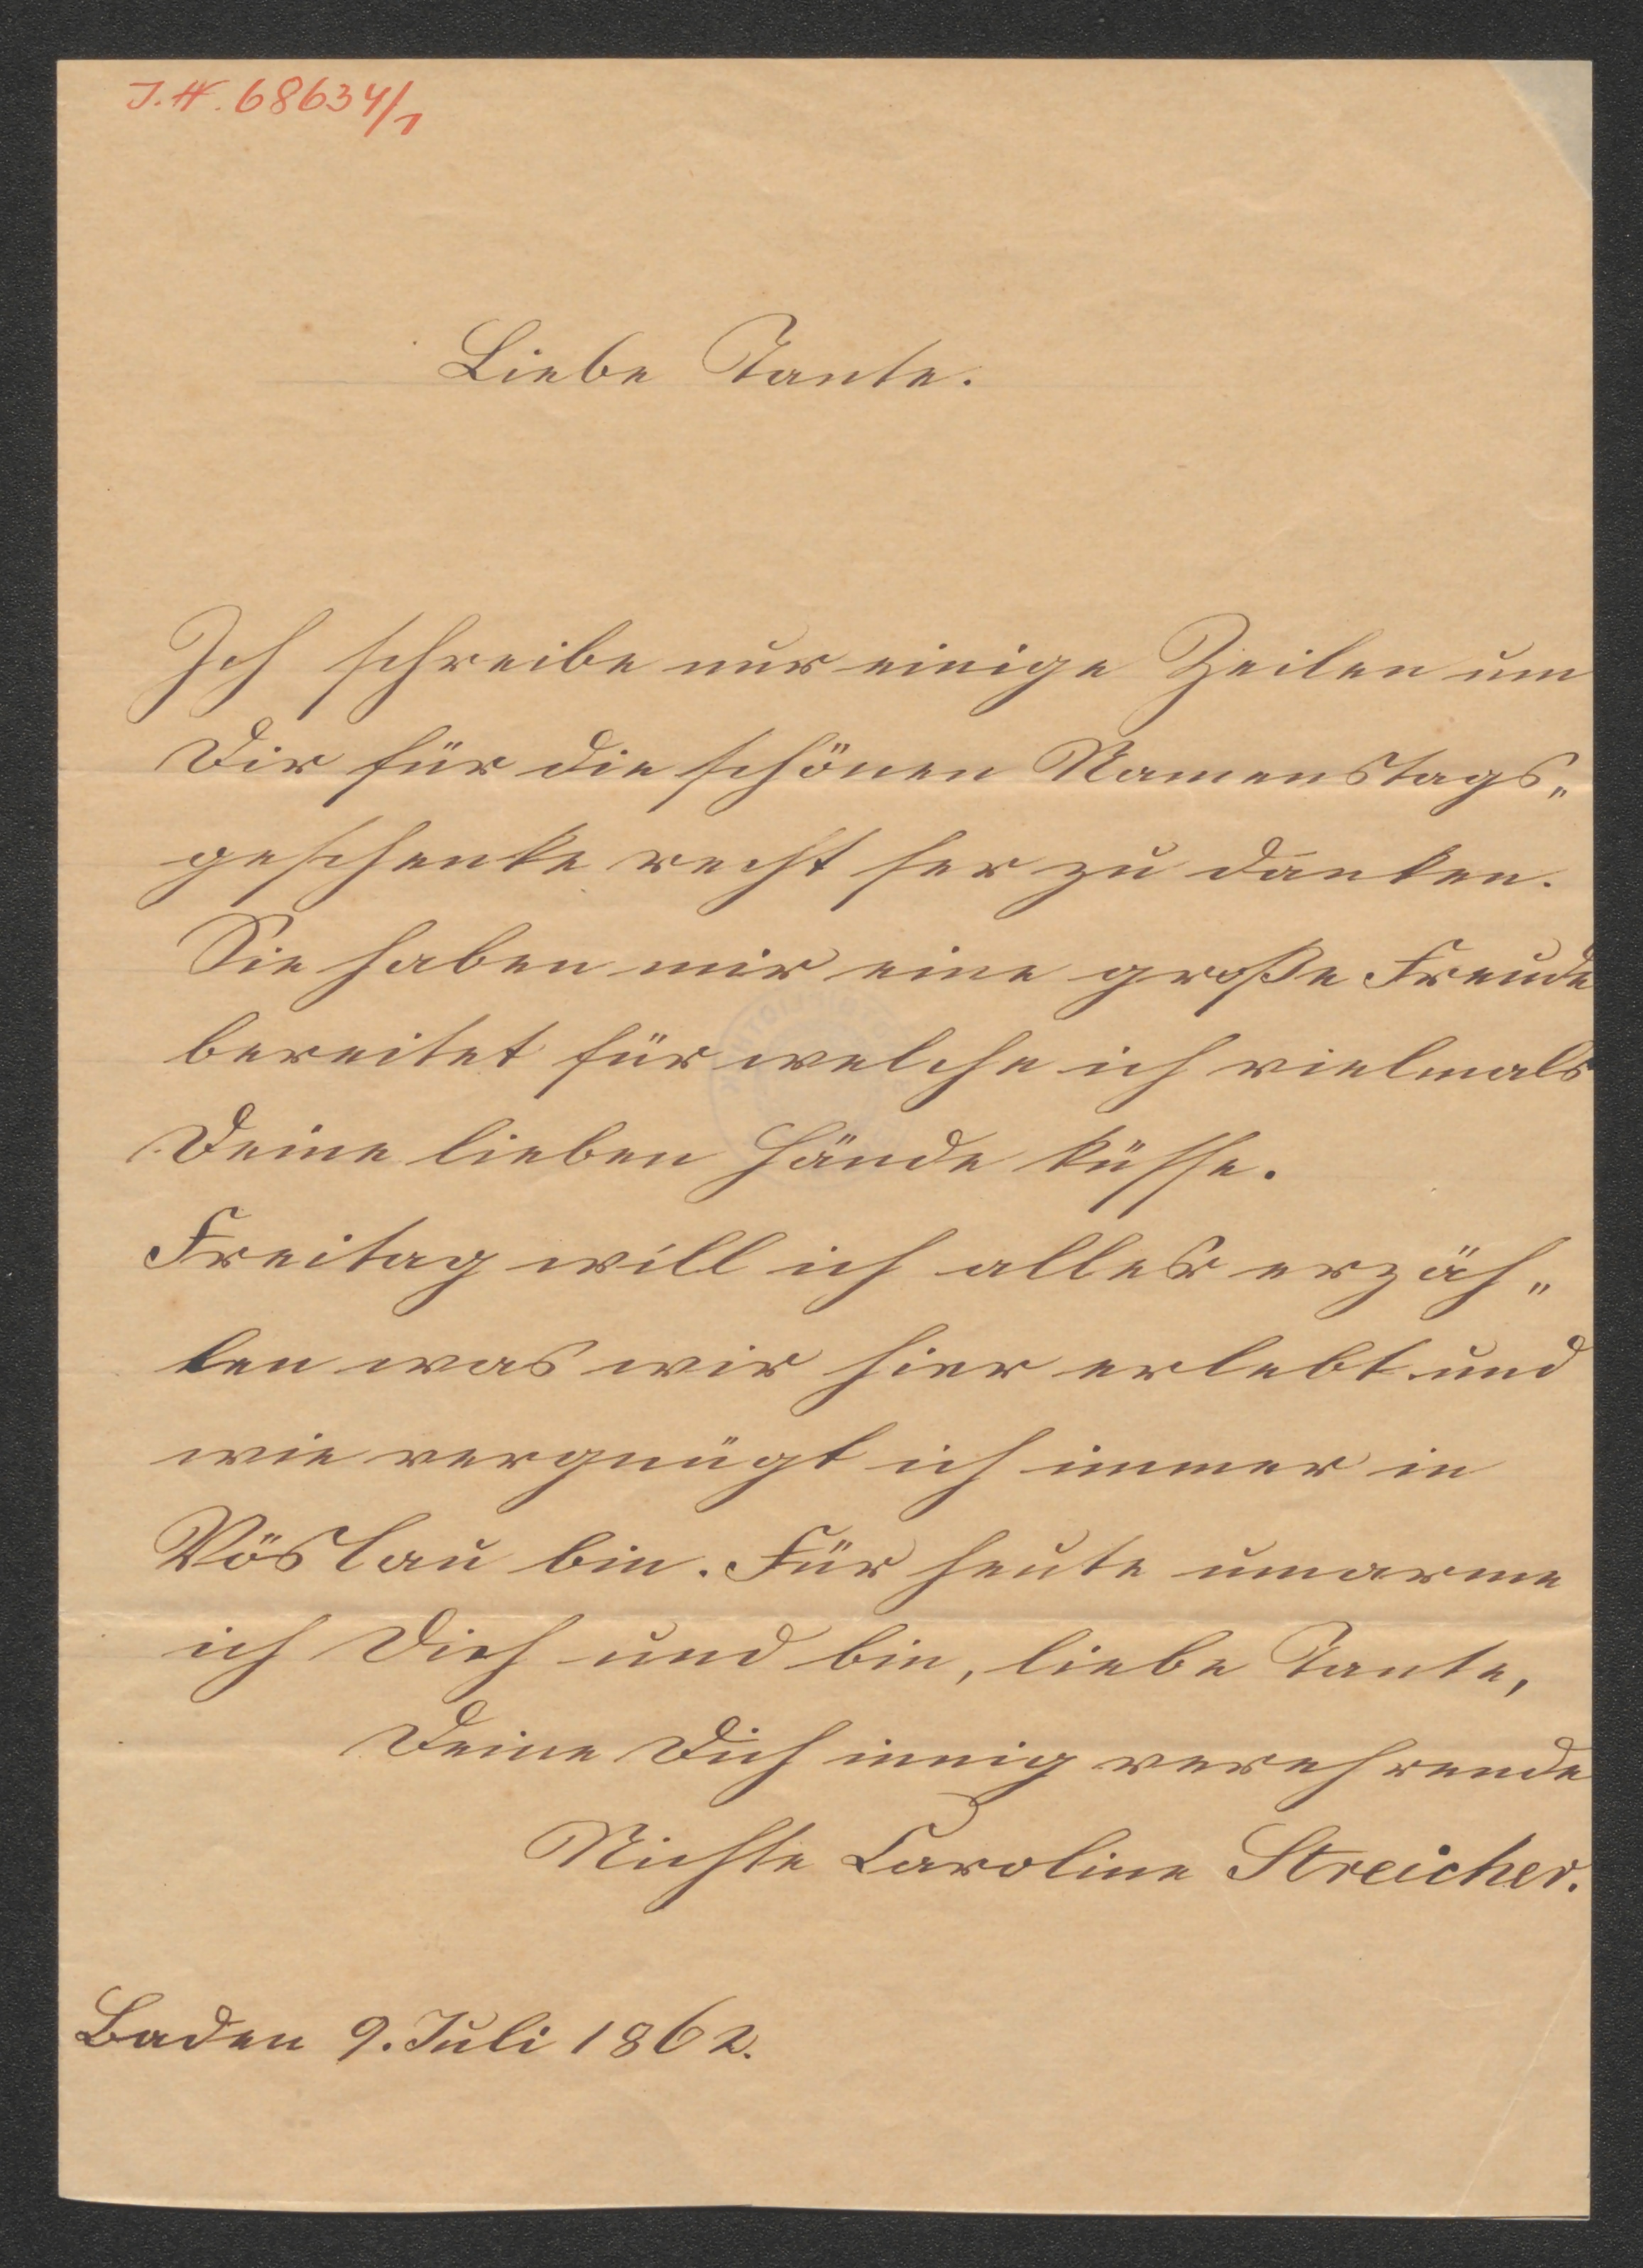 J.N. 68634/1
Liebe Tante.
Ich schreibe nur einige Zeilen um
Dir für die schönen Namenstags„
geschenke recht ser zu danken.
Sie haben mir eine große Freude
bereitet für welche ich vielmals
Deine lieben Hände küsse.
Freitag will ich alles erzäh„
len was wir hier erlebt und
wie vergnügt ich immer in
Vöslau bin. Für heute umarme
ich Dich und bin, liebe Tante,
Deine Dich innig verehrende
Nichte Caroline Streicher.
Baden 9. Juli 1862.